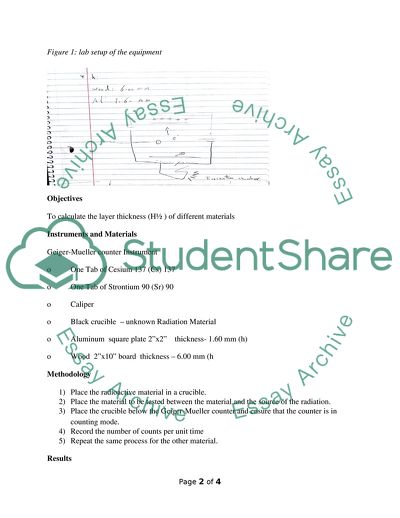 Figure 1: lab setup of the equipment
Objectives
To calculate the layer thickness (H½ ) of different materials
Instruments and Materials
Geiger-Mueller counter Instrument
o One Tab of Cesium 137 (Cs) 137
o One Tab of Strontium 90 (Sr) 90
o Caliper
o Black crucible – unknown Radiation Material
o Aluminum square plate 2”x2” thickness- 1.60 mm (h)
o Wood 2”x10” board thickness – 6.00 mm (h
Methodology
1) Place the radioactive material in a crucible.
2) Place the material to be tested between the material and the source of the radiation.
3) Place the crucible below the Geiger Mueller counter and ensure that the counter is in
counting mode.
4) Record the number of counts per unit time
5) Repeat the same process for the other material.
Results
Page 2 of 4
StudentShare
Essay Archive
Essay Archive
Essay Archive
Essay Archive
Essay Archive
Essay Archive